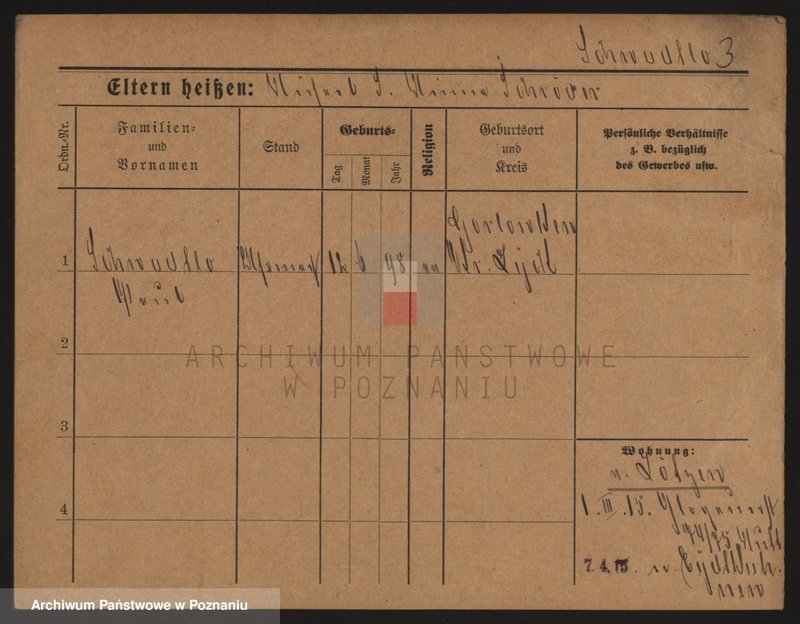 Schwadtlo 3
Eltern heißen: Michael S. Minna Schröder
Ordn.-Nr.
Familien=
und
Vornamen
Stand
Geburts=
Tag
Monat
Jahr
Religion
Geburtsort
und
Kreis
Persönliche Verhältnisse
z. B. bezüglich
des Gewerbes usw.
Gorlowken
1 Schwadtlo 12 6 98 Kr. Lyck
Paul
2
ARCHIWUM PAŃSTWOWE
W POZNANIU
3
Wohnung:
v. Lötzen
4
1. III. 15. Glogauerst
74/75
7.4.15 n. Eydtkuh
nen
Archiwum Państwowe w Poznaniu